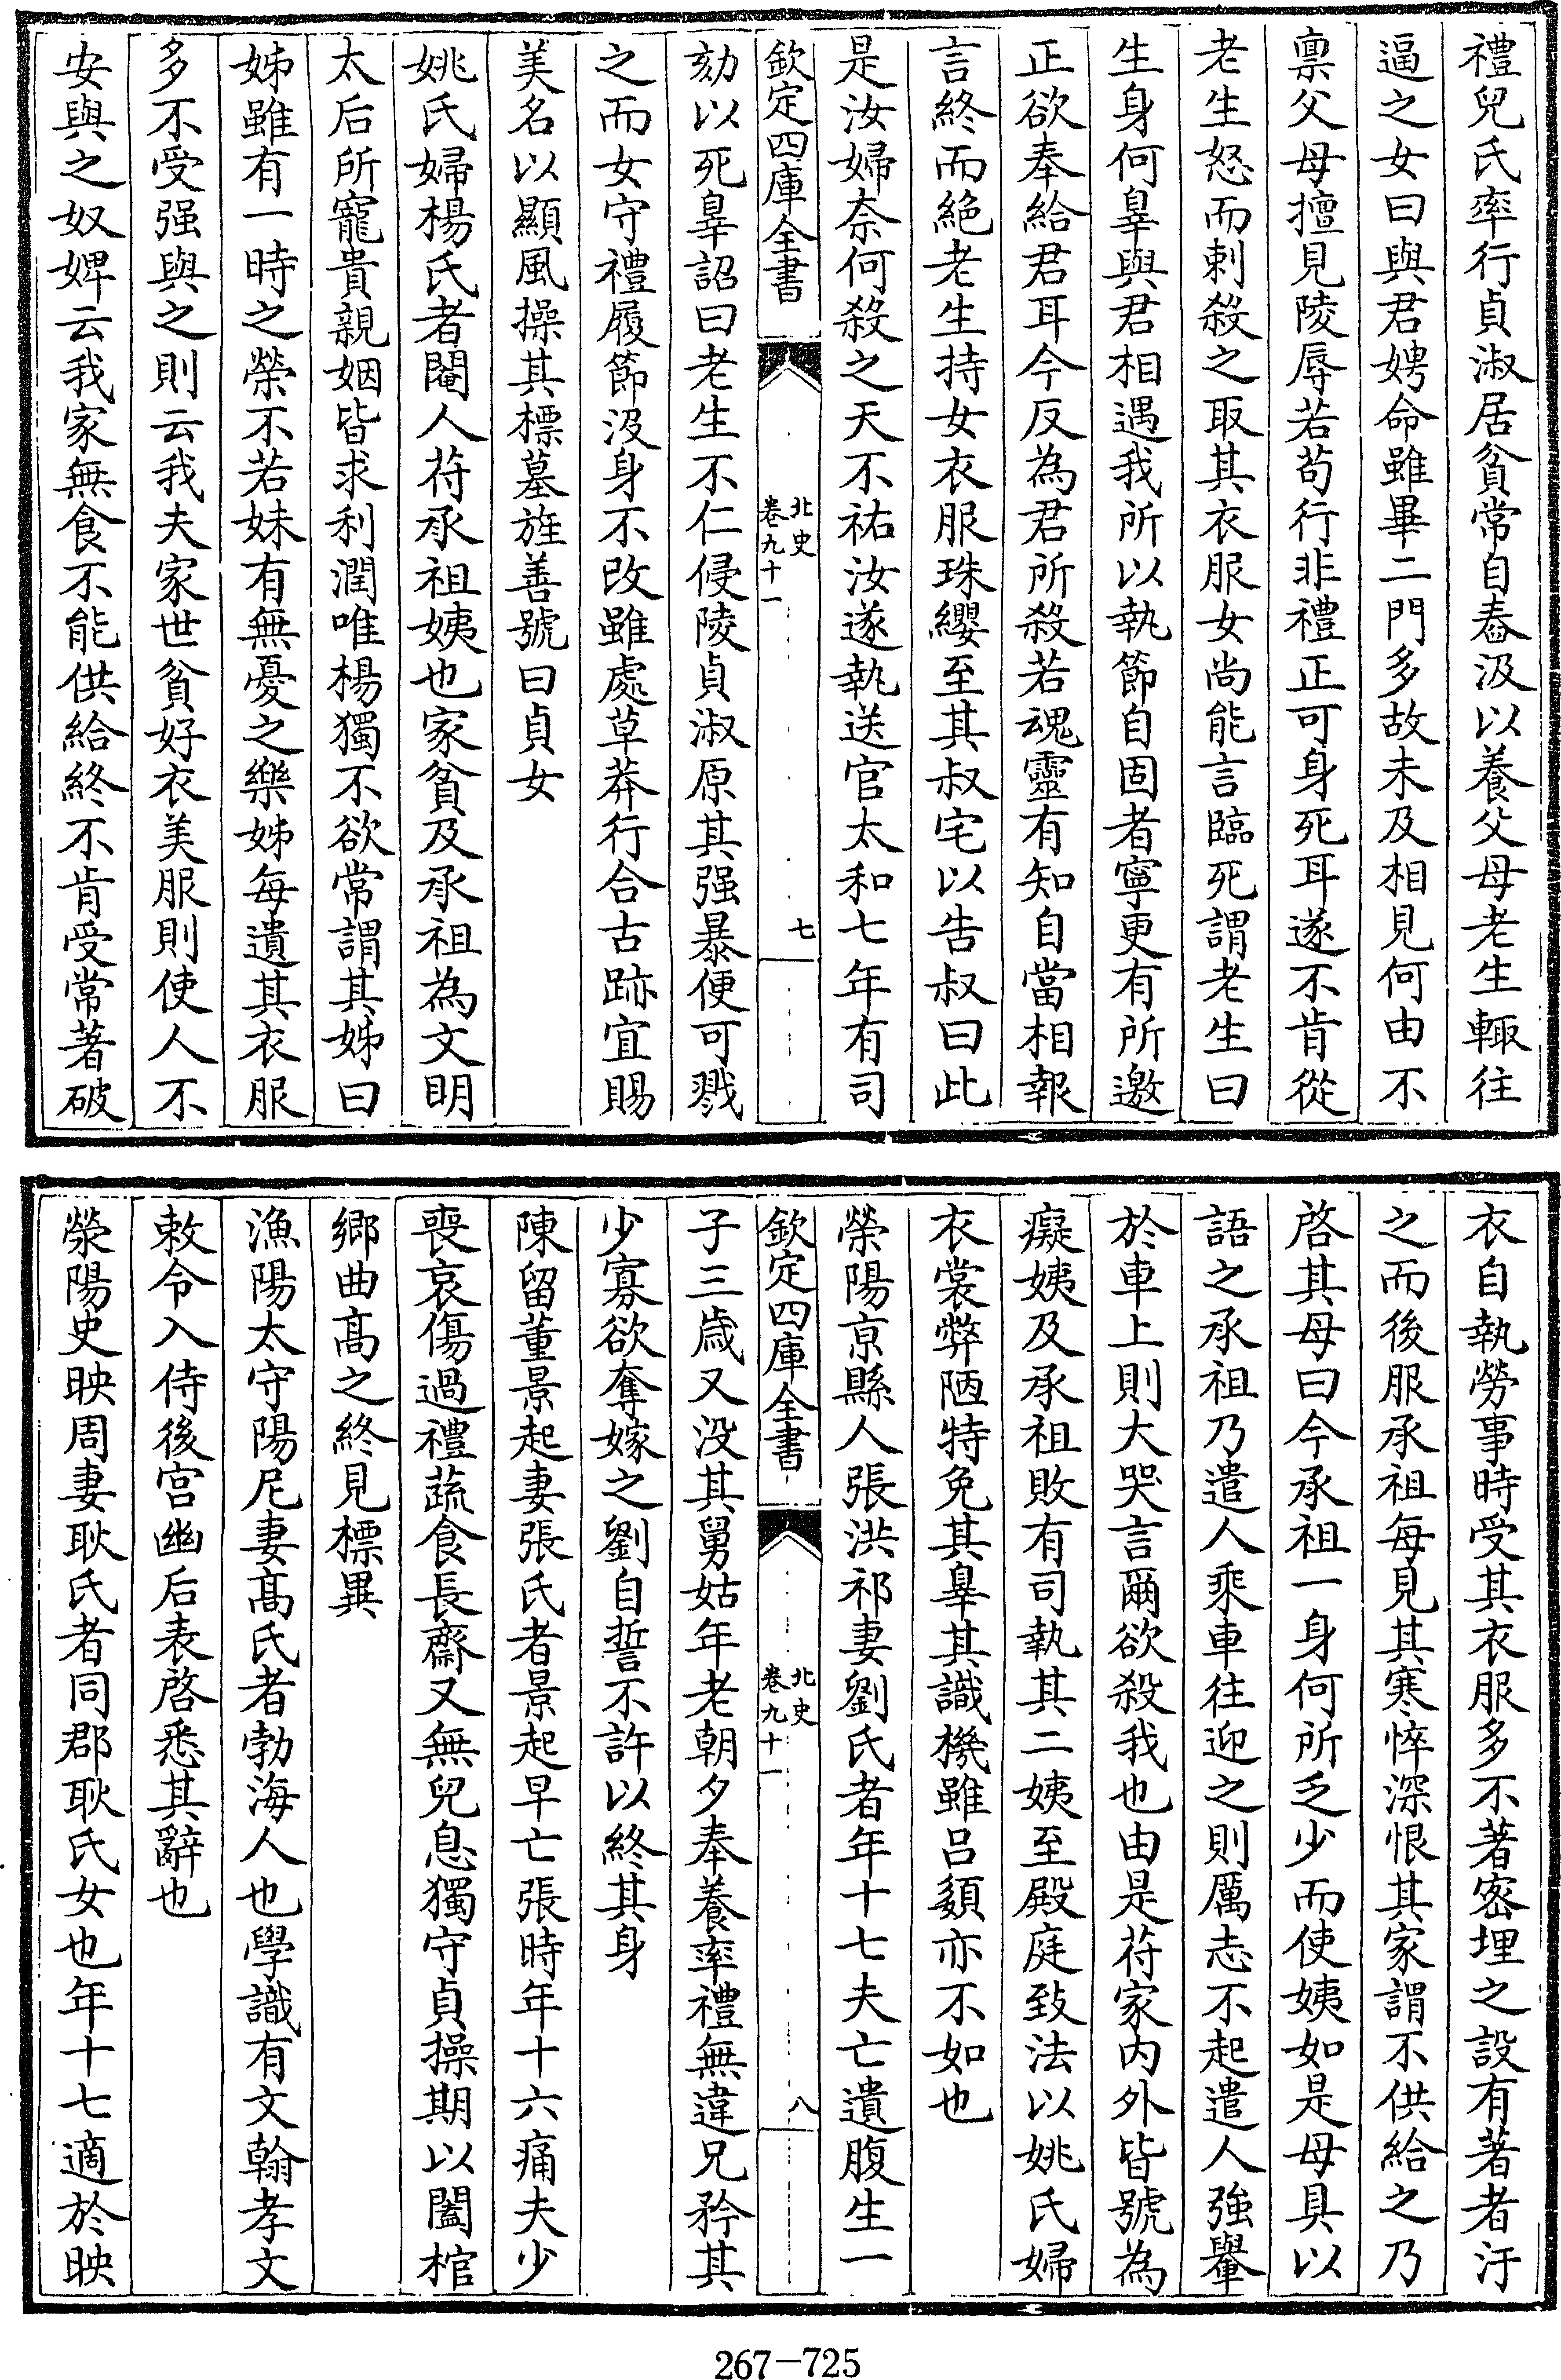 禮兒氏率行貞淑居貧常自舂汲以養父母老生輙往
逼之女曰與君娉命雖畢二門多故未及相見何由不
禀父母擅見陵辱若苟行非禮正可身死耳遂不肯從
老生怒而刺殺之取其衣服女尚能言臨死謂老生曰
生身何辠與君相遇我所以執節自固者寧更有所邀
正欲奉給君耳今反為君所殺若魂靈有知自當相報
言終而絶老生持女衣服珠纓至其叔宅以告叔曰此
是汝婦奈何殺之天不祐汝遂執送官太和七年有司
欽定四庫全書
北史
卷九十一
七
劾以死辠詔曰老生不仁侵陵貞淑原其强暴便可戮
之而女守禮履節没身不改雖處草莽行合古跡宜賜
美名以顯風操其標墓旌善號曰貞女
姚氏婦楊氏者閹人苻承祖姨也家貧及承祖為文明
太后所寵貴親姻皆求利潤唯楊獨不欲常謂其姊曰
姊雖有一時之榮不若妹有無憂之樂姊每遺其衣服
多不受强與之則云我夫家世貧好衣美服則使人不
安與之奴婢云我家無食不能供給終不肯受常著破
衣自執勞事時受其衣服多不著密埋之設有著者汙
之而後服承祖每見其寒悴深恨其家謂不供給之乃
啓其母曰今承祖一身何所乏少而使姨如是母具以
語之承祖乃遣人乘車往迎之則厲志不起遣人強轝
於車上則大哭言爾欲殺我也由是苻家内外皆號為
癡姨及承祖敗有司執其二姨至殿庭致法以姚氏婦
衣裳弊陋特免其辠其識機雖吕䫫亦不如也
榮陽京縣人張洪祁妻劉氏者年十七夫亡遺腹生一
欽定四庫全書
北史
卷九十一
八
子三歳又没其舅姑年老朝夕奉養率禮無違兄矜其
少寡欲奪嫁之劉自誓不許以終其身
陳留董景起妻張氏者景起早亡張時年十六痛夫少
喪哀傷過禮蔬食長齋又無兒息獨守貞操期以闔棺
鄉曲髙之終見標異
漁陽太守陽尼妻髙氏者勃海人也學識有文翰孝文
敕令入侍後宫幽后表啓悉其辭也
滎陽史映周妻耿氏者同郡耿氏女也年十七適於映
267-725